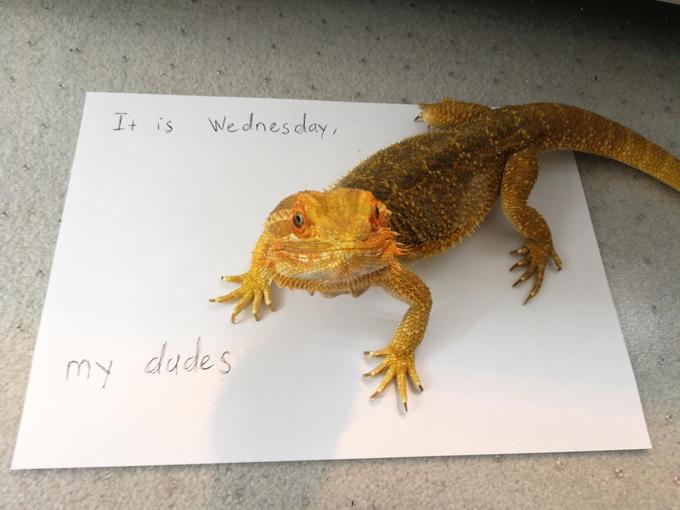 It is Wednesday,
my dudes